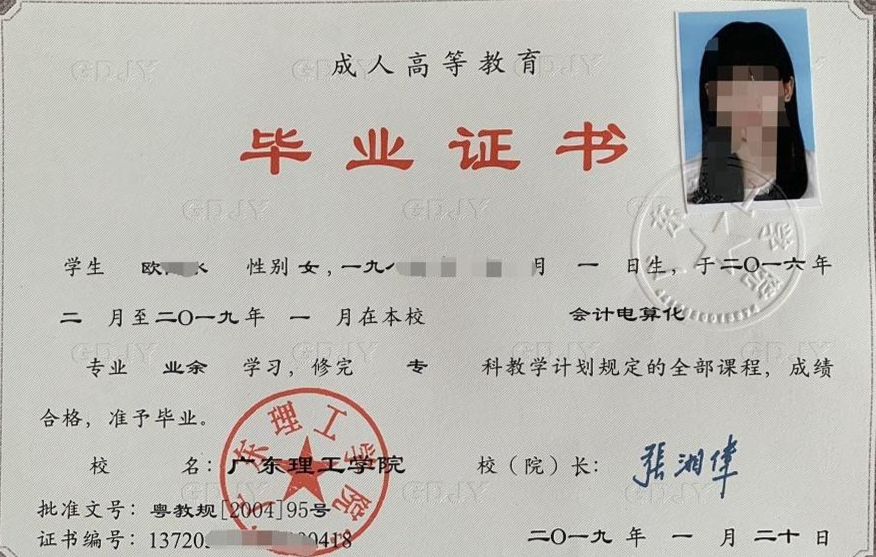 成人高等教育
毕业证书
学生 欧 水 性别 女，一九八 月 一 日生，于二〇一六年
二 月至二〇一九年 一 月在本校 会计电算化
专业 业余 学习，修完 专 科教学计划规定的全部课程，成绩
合格，准予毕业。
校 名：广东理工学院 校（院）长：张湘伟
批准文号：粤教规[2004]95号
证书编号：13720 00418 二〇一九 年 一 月 二十 日
广东理工学院
GDJY GDJY GDJY
GDJY GDJY GDJY
GDJY GDJY GDJY GDJY
GDJY GDJY GDJY